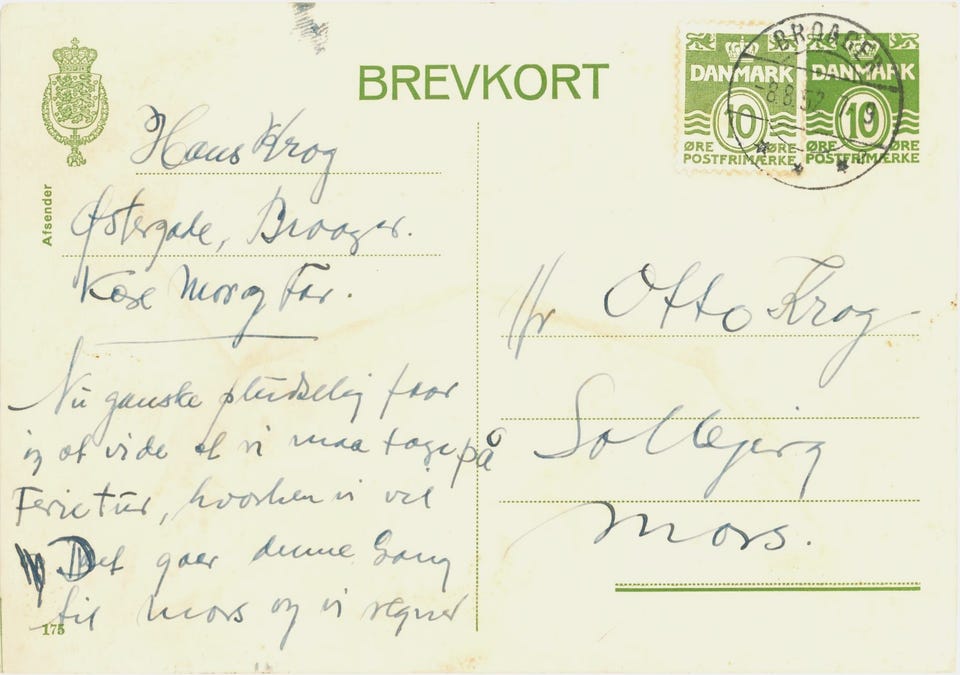 BREVKORT
Afsender
Hans Krog
Østergade, Broager.
Kære Mor og Far.
Nu ganske pludselig faar
jeg at vide at vi maa tage på
Ferietur, hvorhen vi vil
Det gaar denne Gang
til Mors og vi regner
175
DANMARK
10
ØRE ØRE
POSTFRIMÆRKE
DANMARK
10
ØRE ØRE
POSTFRIMÆRKE
BROAGER
-8.8.52
Hr Otto Krog
Solbjerg
Mors.